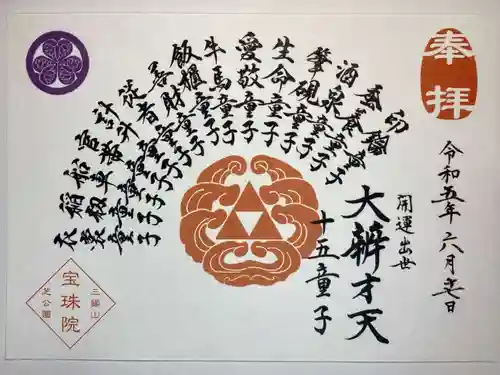 奉拝
令和五年六月
開運出世
大辨才天
十五童子
印鑰童子
蚕養童子
酒泉童子
筆硯童子
生命童子
愛敬童子
牛馬童子
飯櫃童子
善財童子
従者童子
計升童子
官帯童子
船車童子
稲籾童子
衣裳童子
三縁山
宝珠院
芝公園